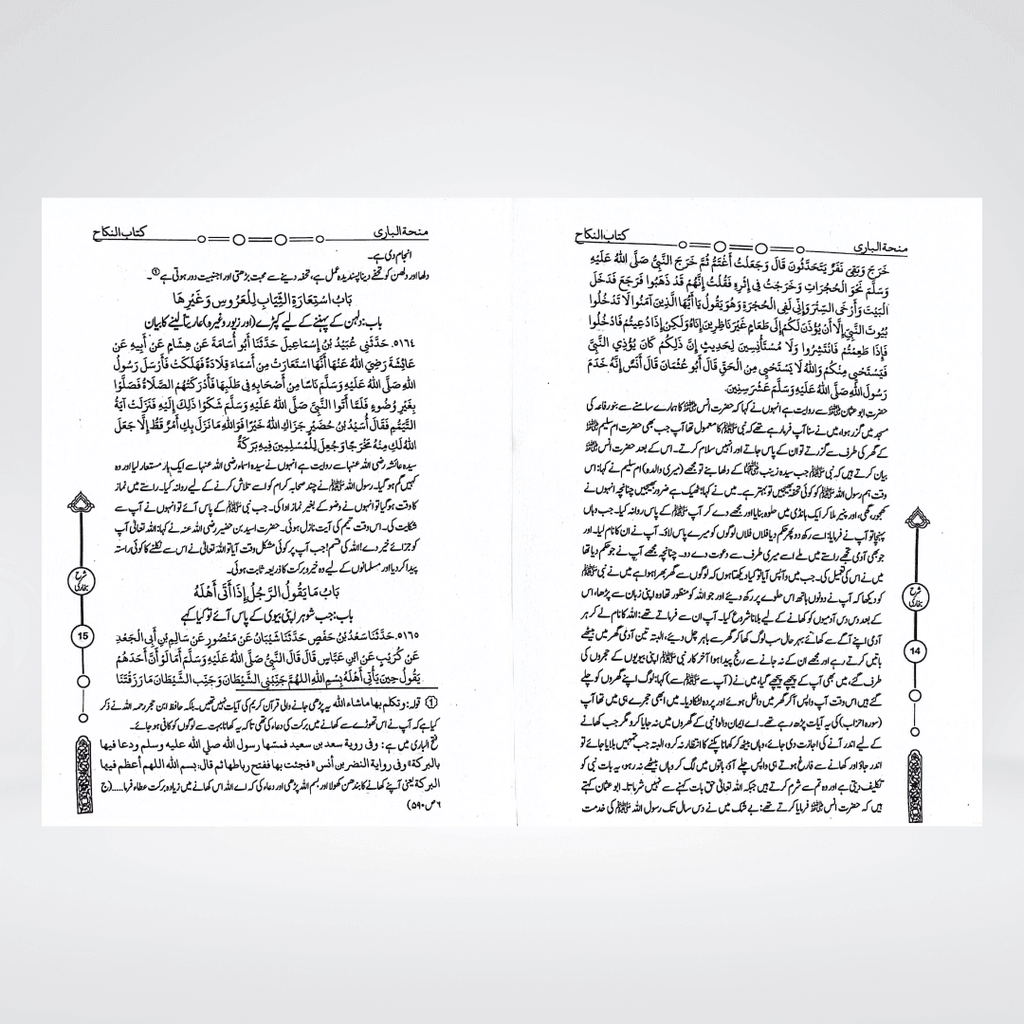 منحة الباری
کتاب النکاح
خَرَجَ وَبَقِيَ نَفَرٌ يَتَحَدَّثُونَ قَالَ وَجَعَلْتُ أَغْتَمُّ ثُمَّ خَرَجَ النَّبِيُّ صَلَّى اللهُ عَلَيْهِ
وَسَلَّمَ نَحْوَ الْحُجُرَاتِ وَخَرَجْتُ فِي إِثْرِهِ فَقُلْتُ إِنَّهُمْ قَدْ ذَهَبُوا فَرَجَعَ فَدَخَلَ
الْبَيْتَ وَأَرْخَى السِّتْرَ وَإِنِّي لَفِي الْحُجْرَةِ وَهُوَ يَقُولُ يَا أَيُّهَا الَّذِينَ آمَنُوا لَا تَدْخُلُوا
بُيُوتَ النَّبِيِّ إِلَّا أَنْ يُؤْذَنَ لَكُمْ إِلَى طَعَامٍ غَيْرَ نَاظِرِينَ إِنَاهُ وَلَكِنْ إِذَا دُعِيتُمْ فَادْخُلُوا
فَإِذَا طَعِمْتُمْ فَانْتَشِرُوا وَلَا مُسْتَأْنِسِينَ لِحَدِيثٍ إِنَّ ذَلِكُمْ كَانَ يُؤْذِي النَّبِيَّ
فَيَسْتَحْيِي مِنْكُمْ وَاللهُ لَا يَسْتَحْيِي مِنَ الْحَقِّ قَالَ أَبُو عُثْمَانَ قَالَ أَنَسٌ إِنَّهُ خَدَمَ
رَسُولَ اللهِ صَلَّى اللهُ عَلَيْهِ وَسَلَّمَ عَشْرَ سِنِينَ.
حضرت ابوعثمان سے روایت ہے انہوں نے کہا کہ حضرت انس کا ہمارے سامنے سے بنورفاعہ کی
مسجد میں گزر ہوا، میں نے سنا آپ فرما رہے تھے کہ نبی ﷺ کا معمول تھا آپ جب بھی حضرت ام سلیم
کے گھر کی طرف سے گزرتے تو ان کے پاس جاتے اور انہیں سلام کرتے۔ اس کے بعد حضرت انس
بیان کرتے ہیں کہ نبی ﷺ جب سیدہ زینب کے دولھا بنے تو مجھے (میری والدہ) ام سلیم نے کہا: اس
وقت ہم رسول اللہ ﷺ کو کوئی تحفہ بھیجیں تو بہتر ہے۔ میں نے کہا: ٹھیک ہے ضرور بھیجیں چنانچہ انہوں نے
کھجور، گھی، اور پنیر ملا کر ایک ہانڈی میں حلوہ بنایا اور مجھے دے کر آپ ﷺ کے پاس روانہ کیا۔ جب وہاں
پہنچا تو آپ نے فرمایا: اسے رکھ دو پھر حکم دیا فلاں فلاں لوگوں کو میرے پاس لاؤ۔ آپ نے ان کا نام لیا۔ اور
جو بھی آدمی تجھے راستے میں ملے اسے میری طرف سے دعوت دے دو۔ چنانچہ مجھے آپ نے جو حکم دیا تھا
میں نے اس کی تعمیل کی۔ جب میں واپس آیا تو کیا دیکھتا ہوں کہ لوگوں سے گھر بھرا ہوا ہے میں نے نبی ﷺ
کو دیکھا کہ آپ نے دونوں ہاتھ اس حلوے پر رکھ دیئے اور جو اللہ کو منظور تھا وہ اپنی زبان سے پڑھا، اس
کے بعد دس دس آدمیوں کو کھانے کے لیے بلانا شروع کیا۔ آپ ان سے فرماتے تھے: اللہ کا نام لے کر ہر
آدمی اپنے آگے سے کھائے بہر حال سب لوگ کھا کر گھر سے باہر چل دیئے، البتہ تین آدمی گھر میں بیٹھے
باتیں کرتے رہے اور مجھے ان کے نہ جانے سے رنج پیدا ہوا آخر کار نبی ﷺ اپنی بیویوں کے حجروں کی
طرف گئے، میں بھی آپ کے پیچھے پیچھے گیا، میں نے (آپ سے) کہا: لوگ اپنے گھروں کو چلے
گئے ہیں اس وقت آپ واپس آ کر گھر میں داخل ہوئے اور پردہ لٹکا دیا۔ میں ابھی حجرے ہی میں تھا آپ
(سورہ احزاب) کی یہ آیات پڑھ رہے تھے۔ اے ایمان والو! نبی کے گھروں میں نہ جایا کرو مگر جب کھانے
کے لیے اندر آنے کی اجازت دی جائے، وہاں بیٹھ کر کھانا پکنے کا انتظار نہ کرو، البتہ جب تمہیں بلایا جائے تو
اندر جاؤ اور کھانے سے فارغ ہوتے ہی واپس چلے آؤ، باتوں میں لگ کر وہاں بیٹھے نہ رہو، یہ بات نبی کو
تکلیف دیتی ہے اور وہ تم سے شرم کرتے ہیں جبکہ اللہ تعالیٰ حق بات کہنے سے نہیں شرماتا۔ ابو عثمان کہتے
ہیں کہ حضرت انس فرمایا کرتے تھے: بے شک میں نے دس سال تک رسول اللہ ﷺ کی خدمت
شرح بخاری
14
منحة الباری
کتاب النکاح
انجام دی ہے۔
دلھا اور دلھن کو تحفے دینا پسندیدہ عمل ہے، تحفہ دینے سے محبت بڑھتی اور اجنبیت دور ہوتی ہے①۔
بَابُ اسْتِعَارَةِ الثِّيَابِ لِلْعَرُوسِ وَغَيْرِهَا
باب: دلہن کے پہننے کے لیے کپڑے (اور زیور وغیرہ) عاریتاً لینے کا بیان
٥١٦٤. حَدَّثَنِي عُبَيْدُ بْنُ إِسْمَاعِيلَ حَدَّثَنَا أَبُو أُسَامَةَ عَنْ هِشَامٍ عَنْ أَبِيهِ عَنْ
عَائِشَةَ رَضِيَ اللهُ عَنْهَا أَنَّهَا اسْتَعَارَتْ مِنْ أَسْمَاءَ قِلَادَةً فَهَلَكَتْ فَأَرْسَلَ رَسُولُ
اللهِ صَلَّى اللهُ عَلَيْهِ وَسَلَّمَ نَاسًا مِنْ أَصْحَابِهِ فِي طَلَبِهَا فَأَدْرَكَتْهُمُ الصَّلَاةُ فَصَلَّوْا
بِغَيْرِ وُضُوءٍ فَلَمَّا أَتَوُا النَّبِيَّ صَلَّى اللهُ عَلَيْهِ وَسَلَّمَ شَكَوْا ذَلِكَ إِلَيْهِ فَنَزَلَتْ آيَةُ
التَّيَمُّمِ فَقَالَ أُسَيْدُ بْنُ حُضَيْرٍ جَزَاكِ اللهُ خَيْرًا فَوَاللهِ مَا نَزَلَ بِكِ أَمْرٌ قَطُّ إِلَّا جَعَلَ
اللهُ لَكِ مِنْهُ مَخْرَجًا وَجُعِلَ لِلْمُسْلِمِينَ فِيهِ بَرَكَةٌ
سیدہ عائشہ رضی اللہ عنہا سے روایت ہے انہوں نے سیدہ اسماء رضی اللہ عنہا سے ایک ہار مستعار لیا اور وہ
کہیں گم ہو گیا۔ رسول اللہ ﷺ نے چند صحابہ کرام کو اسے تلاش کرنے کے لیے روانہ کیا۔ راستے میں نماز
کا وقت ہو گیا تو انہوں نے وضو کے بغیر نماز ادا کی۔ جب نبی ﷺ کے پاس آئے تو انہوں نے آپ سے
شکایت کی۔ اس وقت تیمم کی آیت نازل ہوئی۔ حضرت اسید بن حضیر رضی اللہ عنہ نے کہا: اللہ تعالیٰ آپ
کو جزائے خیر دے! اللہ کی قسم! جب آپ پر کوئی مشکل وقت آیا تو اللہ تعالیٰ نے اس سے نکلنے کا کوئی راستہ
پیدا کر دیا اور مسلمانوں کے لیے وہ خیر و برکت کا ذریعہ ثابت ہوئی۔
بَابُ مَا يَقُولُ الرَّجُلُ إِذَا أَتَى أَهْلَهُ
باب: جب شوہر اپنی بیوی کے پاس آئے تو کیا کہے
٥١٦٥. حَدَّثَنَا سَعْدُ بْنُ حَفْصٍ حَدَّثَنَا شَيْبَانُ عَنْ مَنْصُورٍ عَنْ سَالِمِ بْنِ أَبِي الْجَعْدِ
عَنْ كُرَيْبٍ عَنِ ابْنِ عَبَّاسٍ قَالَ قَالَ النَّبِيُّ صَلَّى اللهُ عَلَيْهِ وَسَلَّمَ أَمَا لَوْ أَنَّ أَحَدَهُمْ
يَقُولُ حِينَ يَأْتِي أَهْلَهُ بِسْمِ اللهِ اللهُمَّ جَنِّبْنِي الشَّيْطَانَ وَجَنِّبِ الشَّيْطَانَ مَا رَزَقْتَنَا
① قولہ: وتکلم بھا ماشاء اللہ یہ پڑھی جانے والی قرآن کریم کی آیات نہیں تھیں۔ بلکہ حافظ ابن حجر رحمہ اللہ نے ذکر
کیا ہے کہ آپ نے اس تھوڑے سے کھانے میں برکت کی دعا کی تھی تاکہ یہ کھانا بہت سے لوگوں کو کافی ہو جائے۔
فتح الباری میں ہے: وفی رویة سعد بن سعید فمسها رسول اللہ صلی اللہ علیہ وسلم ودعا فیها
بالبرکة» وفی روایة النضر بن أنس «فجئت بها ففتح رباطها ثم قال: بسم اللہ اللهم أعظم فیها
البرکة یعنی آپنے کھانے کا بندھن کھولا اور بسم اللہ پڑھی اور دعاء کی کہ اے اللہ اس کھانے میں زیادہ برکت عطاء فرما.....(ج
٦ ص ٥٩٠)
شرح بخاری
15